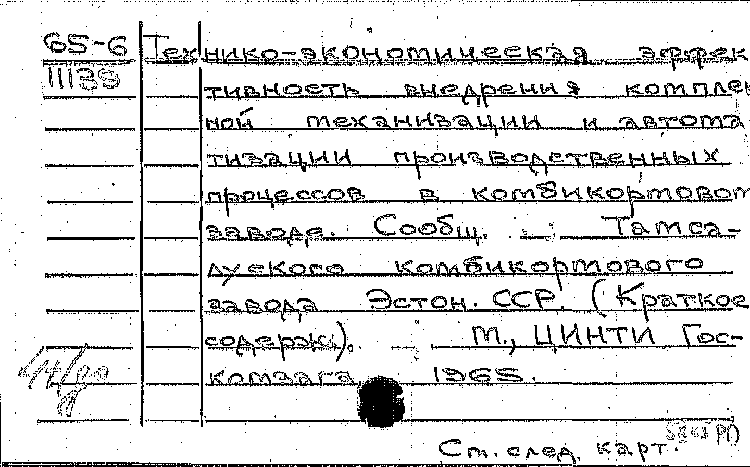 65-6 Технико-экономическая эффек
11139 тивность внедрения комплек
ной механизации и автома
тизации производственных
процессов в комбикормовом
заводе. Сообщ. Тамса-
луского комбикормового
завода Эстон. ССР. (Краткое
содерж). М., ЦИНТИ Гос-
комзага 1965.
См. след. карт.